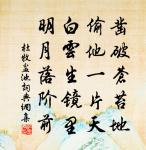 凿破苍苔地
偷他一片天
白云生镜里
明月落阶前
杜牧盆池词典调集